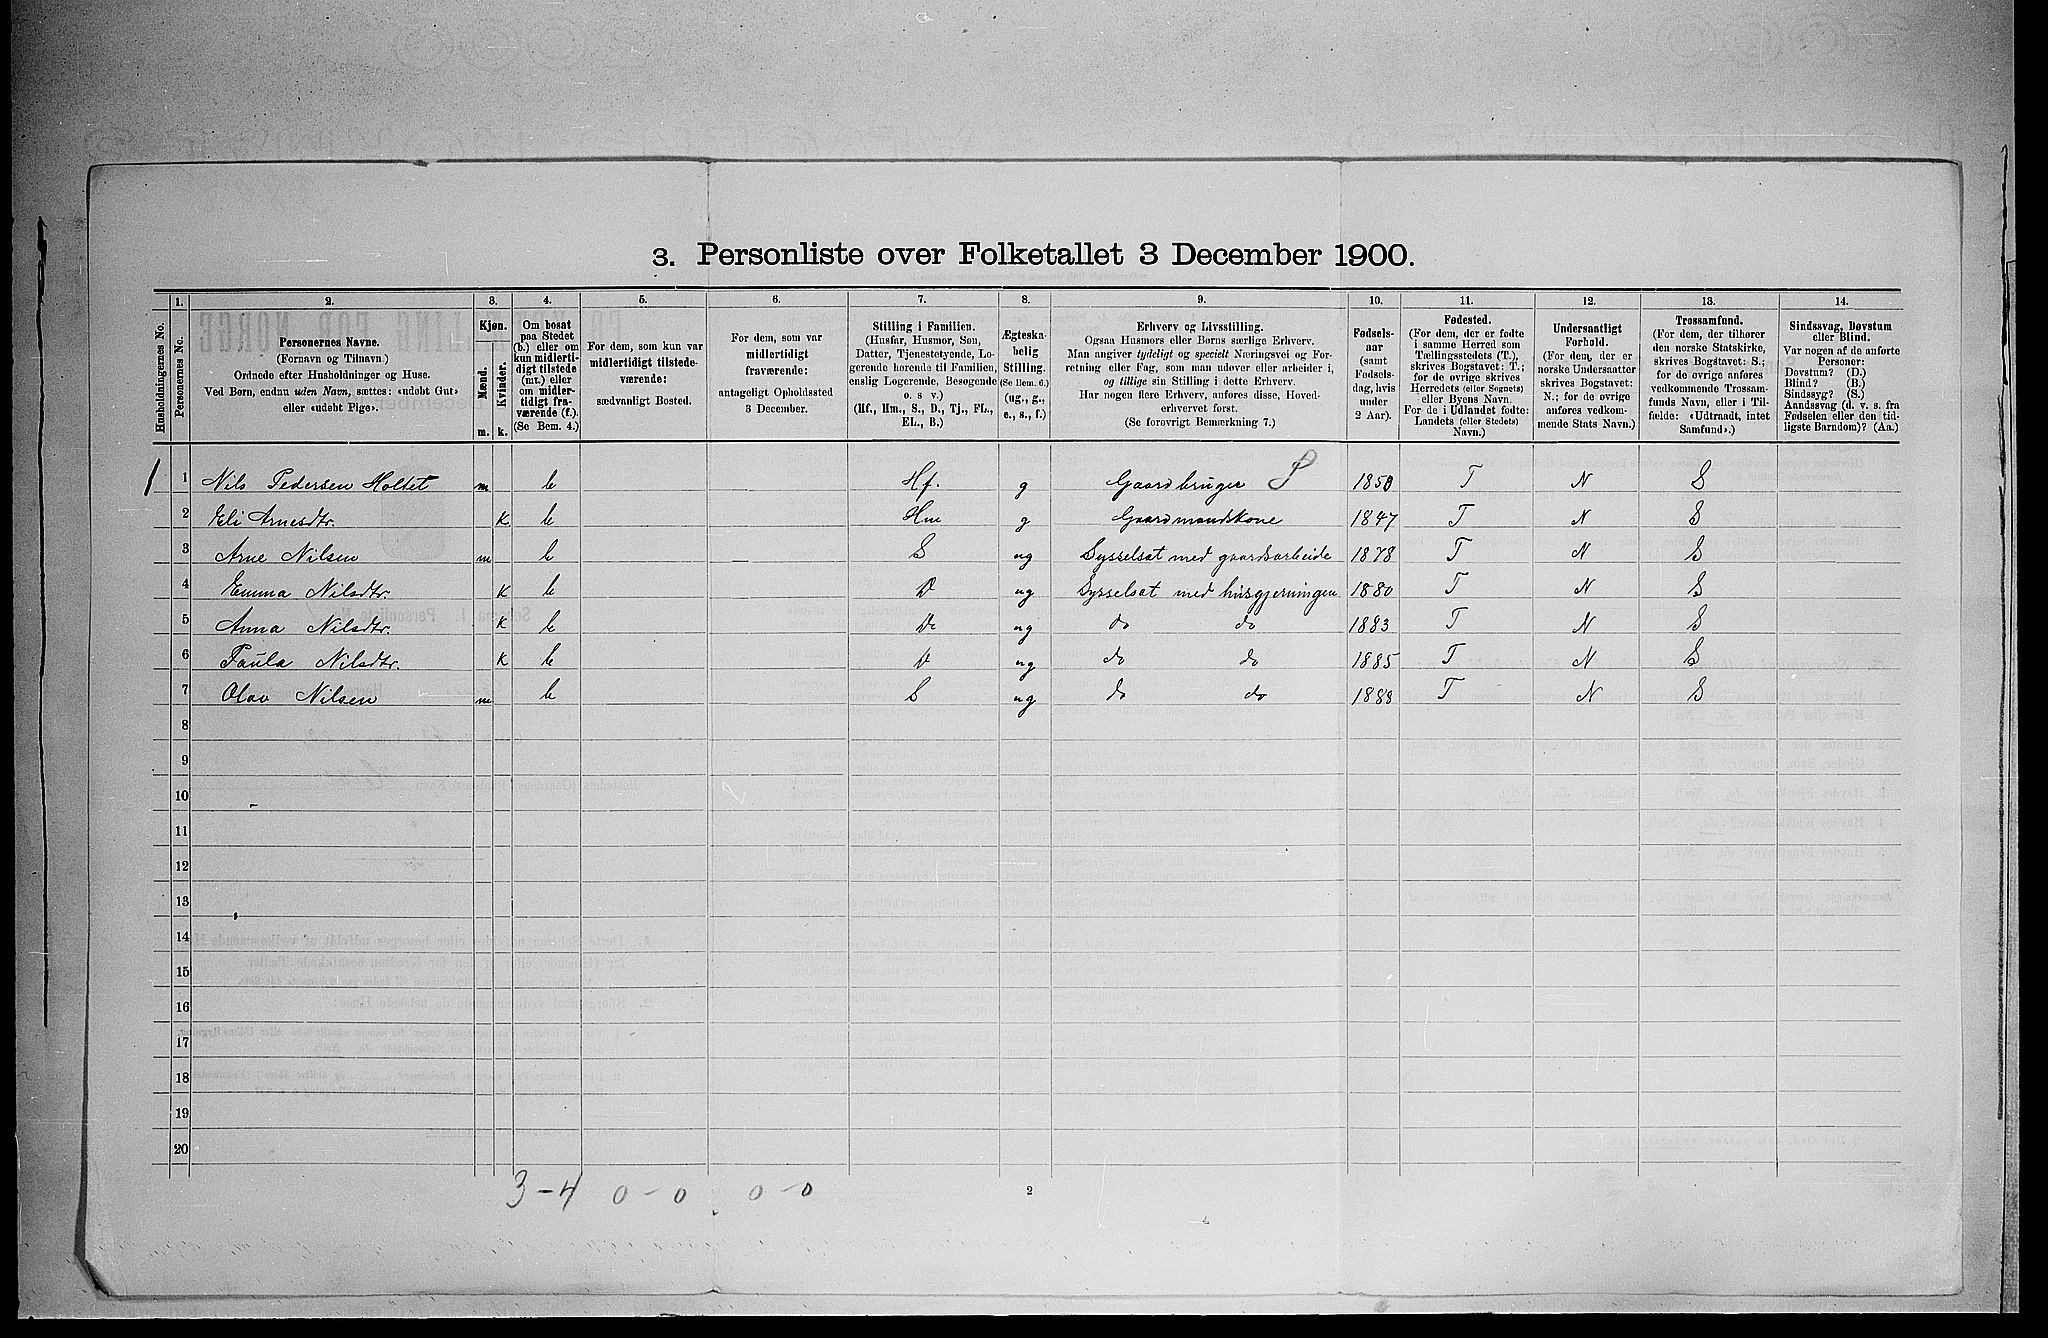 3. Personliste over Folketallet 3 December 1900.
1. 2. 3. 4. 5. 6. 7. 8. 9. 10. 11. 12. 13. 14.
Husholdningernes No.
Personernes No.
Personernes Navne.
(Fornavn og Tilnavn.)
Ordnede efter Husholdninger og Huse.
Ved Børn, endnu uden Navn, sættes: «udøbt Gut»
eller «udøbt Pige».
Kjøn.
Mænd.
Kvinder.
m. k.
Om bosat
paa Stedet
(b.) eller om
kun midlerti-
digt tilstede
(mt.) eller
om midler-
tidigt fra-
værende (f.).
(Se Bem. 4.)
For dem, som kun var
midlertidigt tilstede-
værende:
sædvanligt Bosted.
For dem, som var
midlertidigt
fraværende:
antageligt Opholdssted
3 December.
Stilling i Familien.
(Husfar, Husmor, Søn,
Datter, Tjenestetyende, Lo-
gerende hørende til Familien,
enslig Logerende, Besøgende
o. s. v.)
(Hf., Hm., S., D., Tj., FL.,
EL., B.)
Ægteska-
belig
Stilling.
(Se Bem. 6.)
(ug., g.,
e., s., f.)
Erhverv og Livsstilling.
Ogsaa Husmors eller Børns særlige Erhverv.
Man angiver tydeligt og specielt Næringsvei og For-
retning eller Fag, som man udøver eller arbeider i,
og tillige sin Stilling i dette Erhverv.
Har nogen flere Erhverv, anføres disse, Hoved-
erhvervet først.
(Se forøvrigt Bemærkning 7.)
Fødsels-
aar
(samt
Fødsels-
dag, hvis
under
2 Aar).
Fødested.
(For dem, der er fødte
i samme Herred som
Tællingsstedets (T.),
skrives Bogstavet: T.;
for de øvrige skrives
Herredets (eller Sognets)
eller Byens Navn.
For de i Udlandet fødte:
Landets (eller Stedets)
Navn.)
Undersaatligt
Forhold.
(For dem, der er
norske Undersaatter
skrives Bogstavet:
N.; for de øvrige
anføres vedkom-
mende Stats Navn.)
Trossamfund.
(For dem, der tilhører
den norske Statskirke,
skrives Bogstavet: S.;
for de øvrige anføres
vedkommende Trossam-
funds Navn, eller i Til-
fælde: «Udtraadt, intet
Samfund».)
Sindssvag, Døvstum
eller Blind.
Var nogen af de anførte
Personer:
Døvstum? (D.)
Blind? (B.)
Sindssyg? (S.)
Aandssvag (d. v. s. fra
Fødselen eller den tid-
ligste Barndom)? (Aa.)
1 1 Nils Pedersen Holtet m b Hf. g Gaardbruger 1850 T N S
2 Eli Arnesdtr. K b Hm g Gaardmandskone 1847 T N S
3 Arne Nilsen m b S ug Sysselsat med gaardsarbeide 1878 T N S
4 Emma Nilsdtr. K b D ug Sysselsat med husgjerningen 1880 T N S
5 Anna Nilsdtr. K b D ug do do 1883 T N S
6 Paula Nilsdtr. K b D ug do do 1885 T N S
7 Olav Nilsen m b S ug do do 1888 T N S
8
9
10
11
12
13
14
15
16
17
18
19
20
3-4 0-0 0-0
2